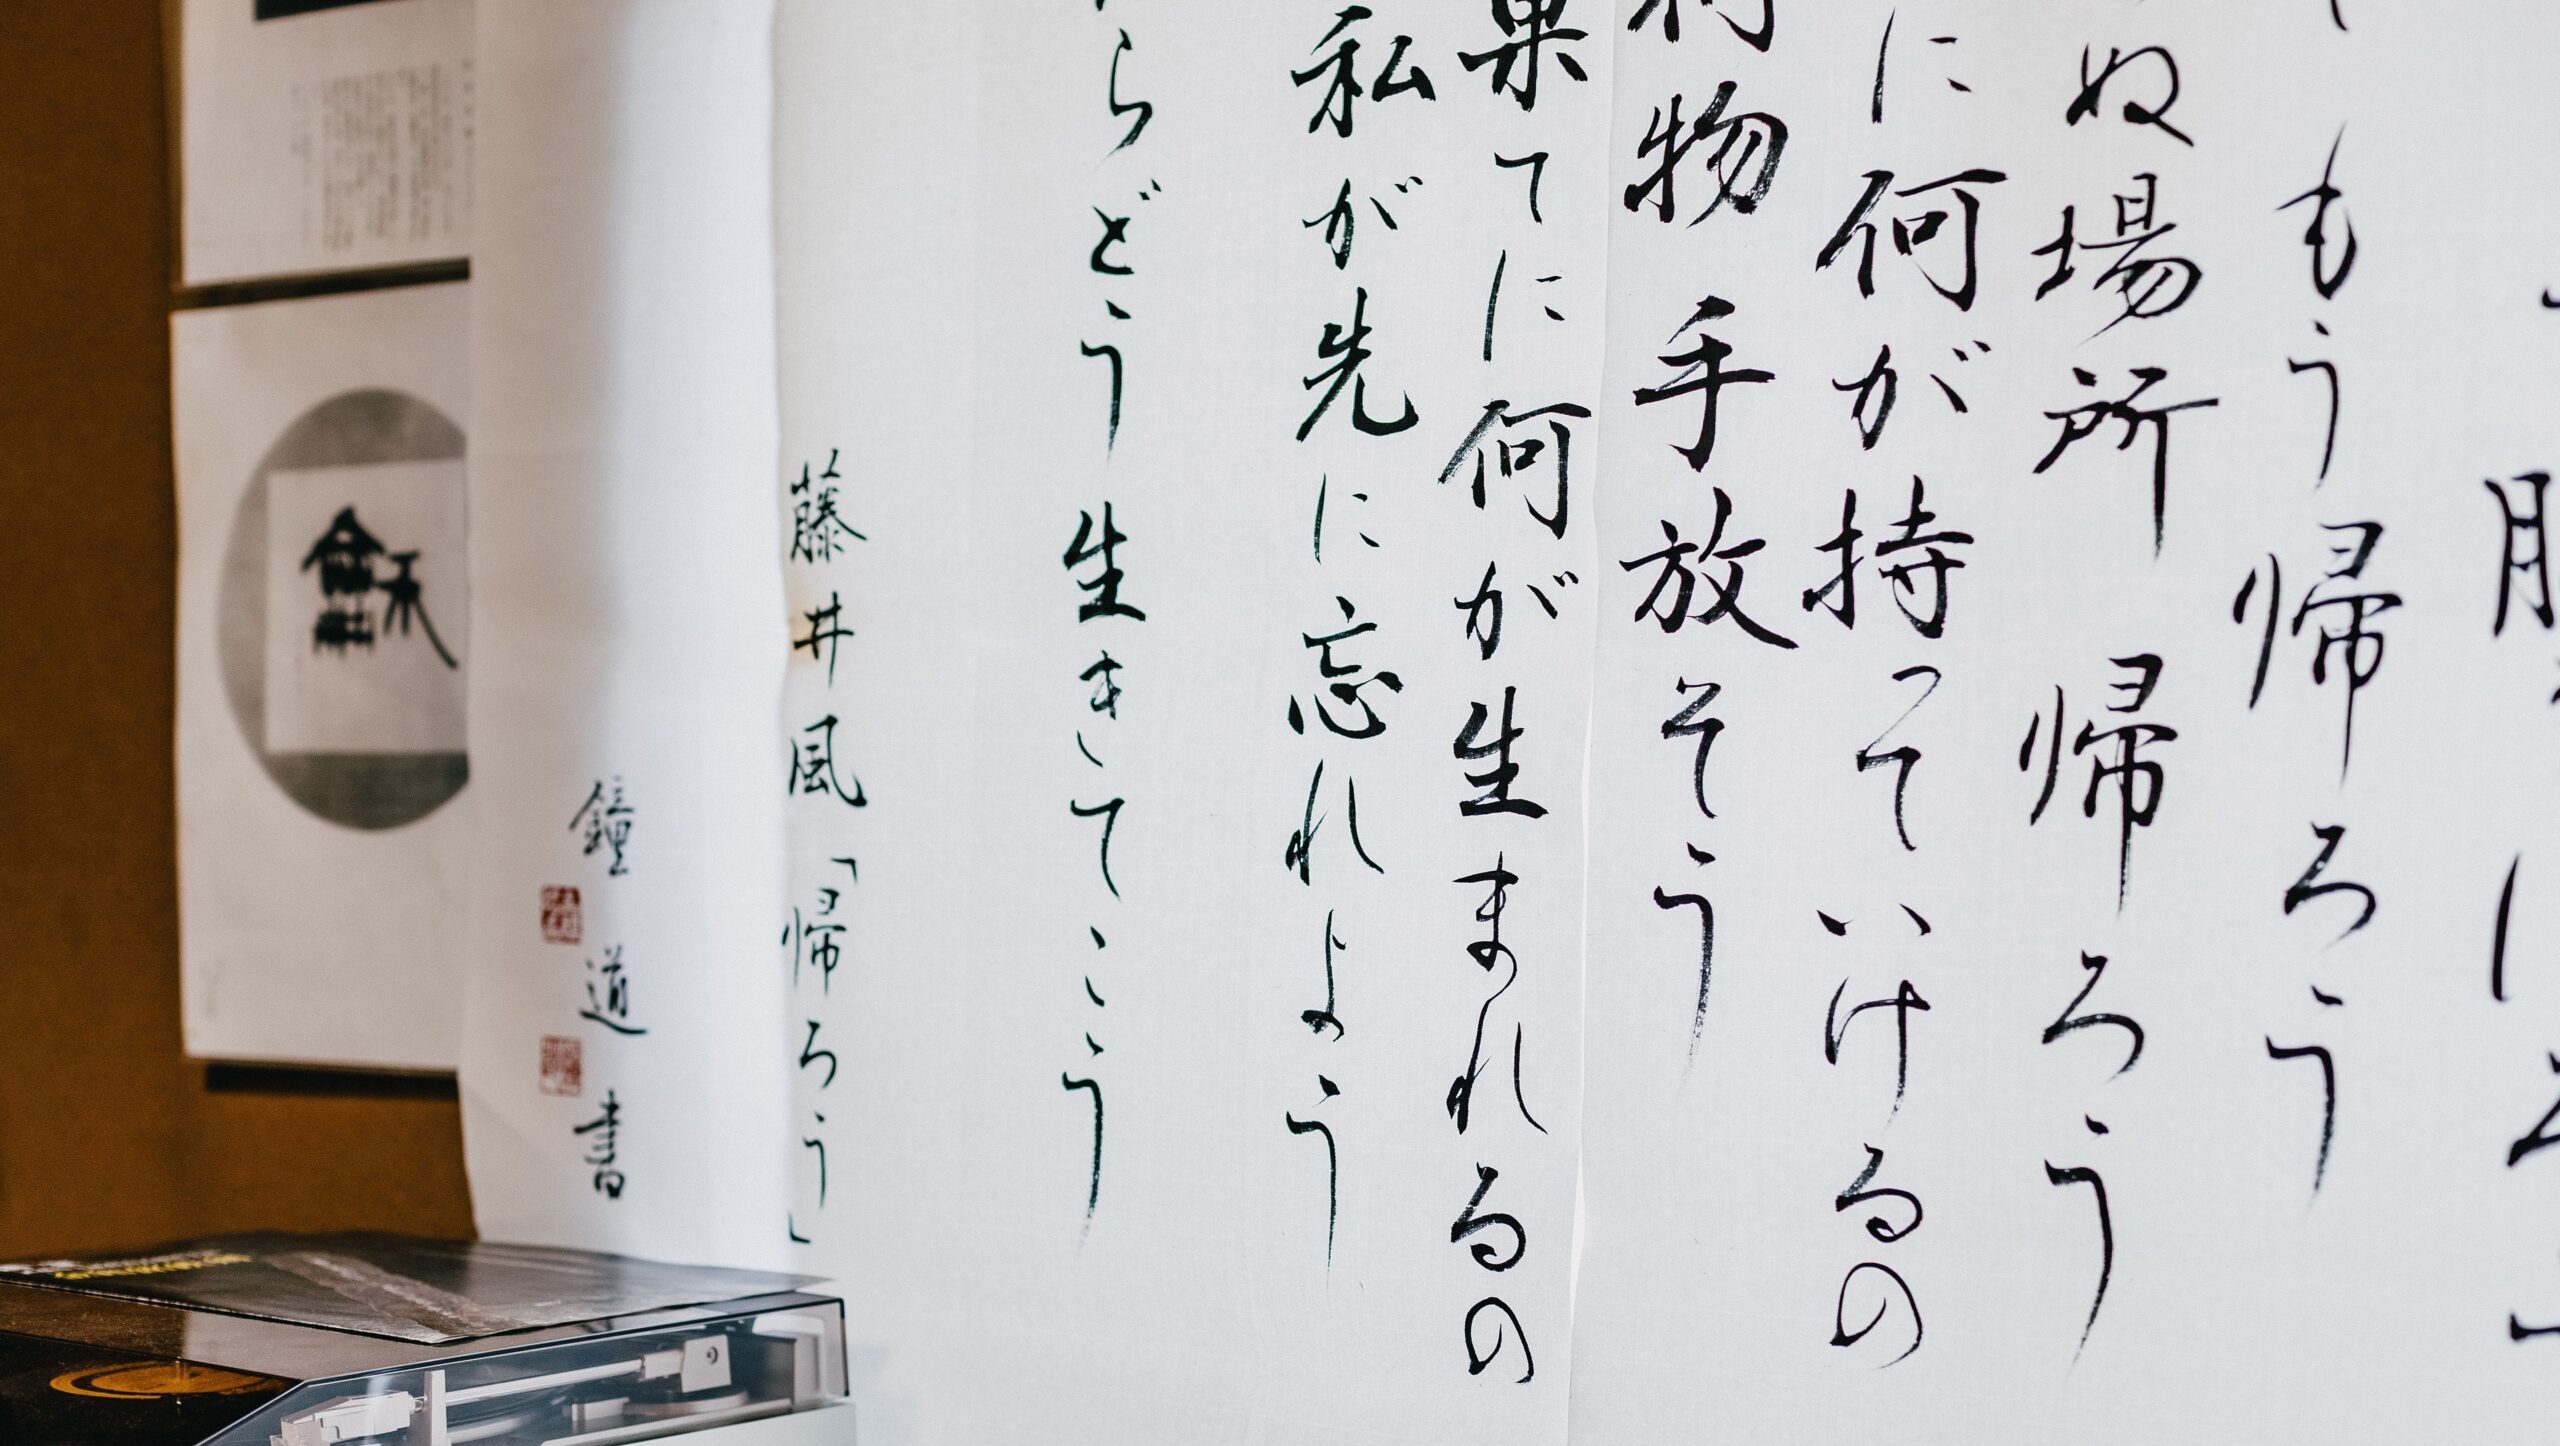 もう帰ろう
ぬ場所 帰ろう
に何が持っていけるの
物 手放そう
果てに何が生まれるの
私が先に忘れよう
らどう生きてこう
藤井風「帰ろう」
鐘道書
龢